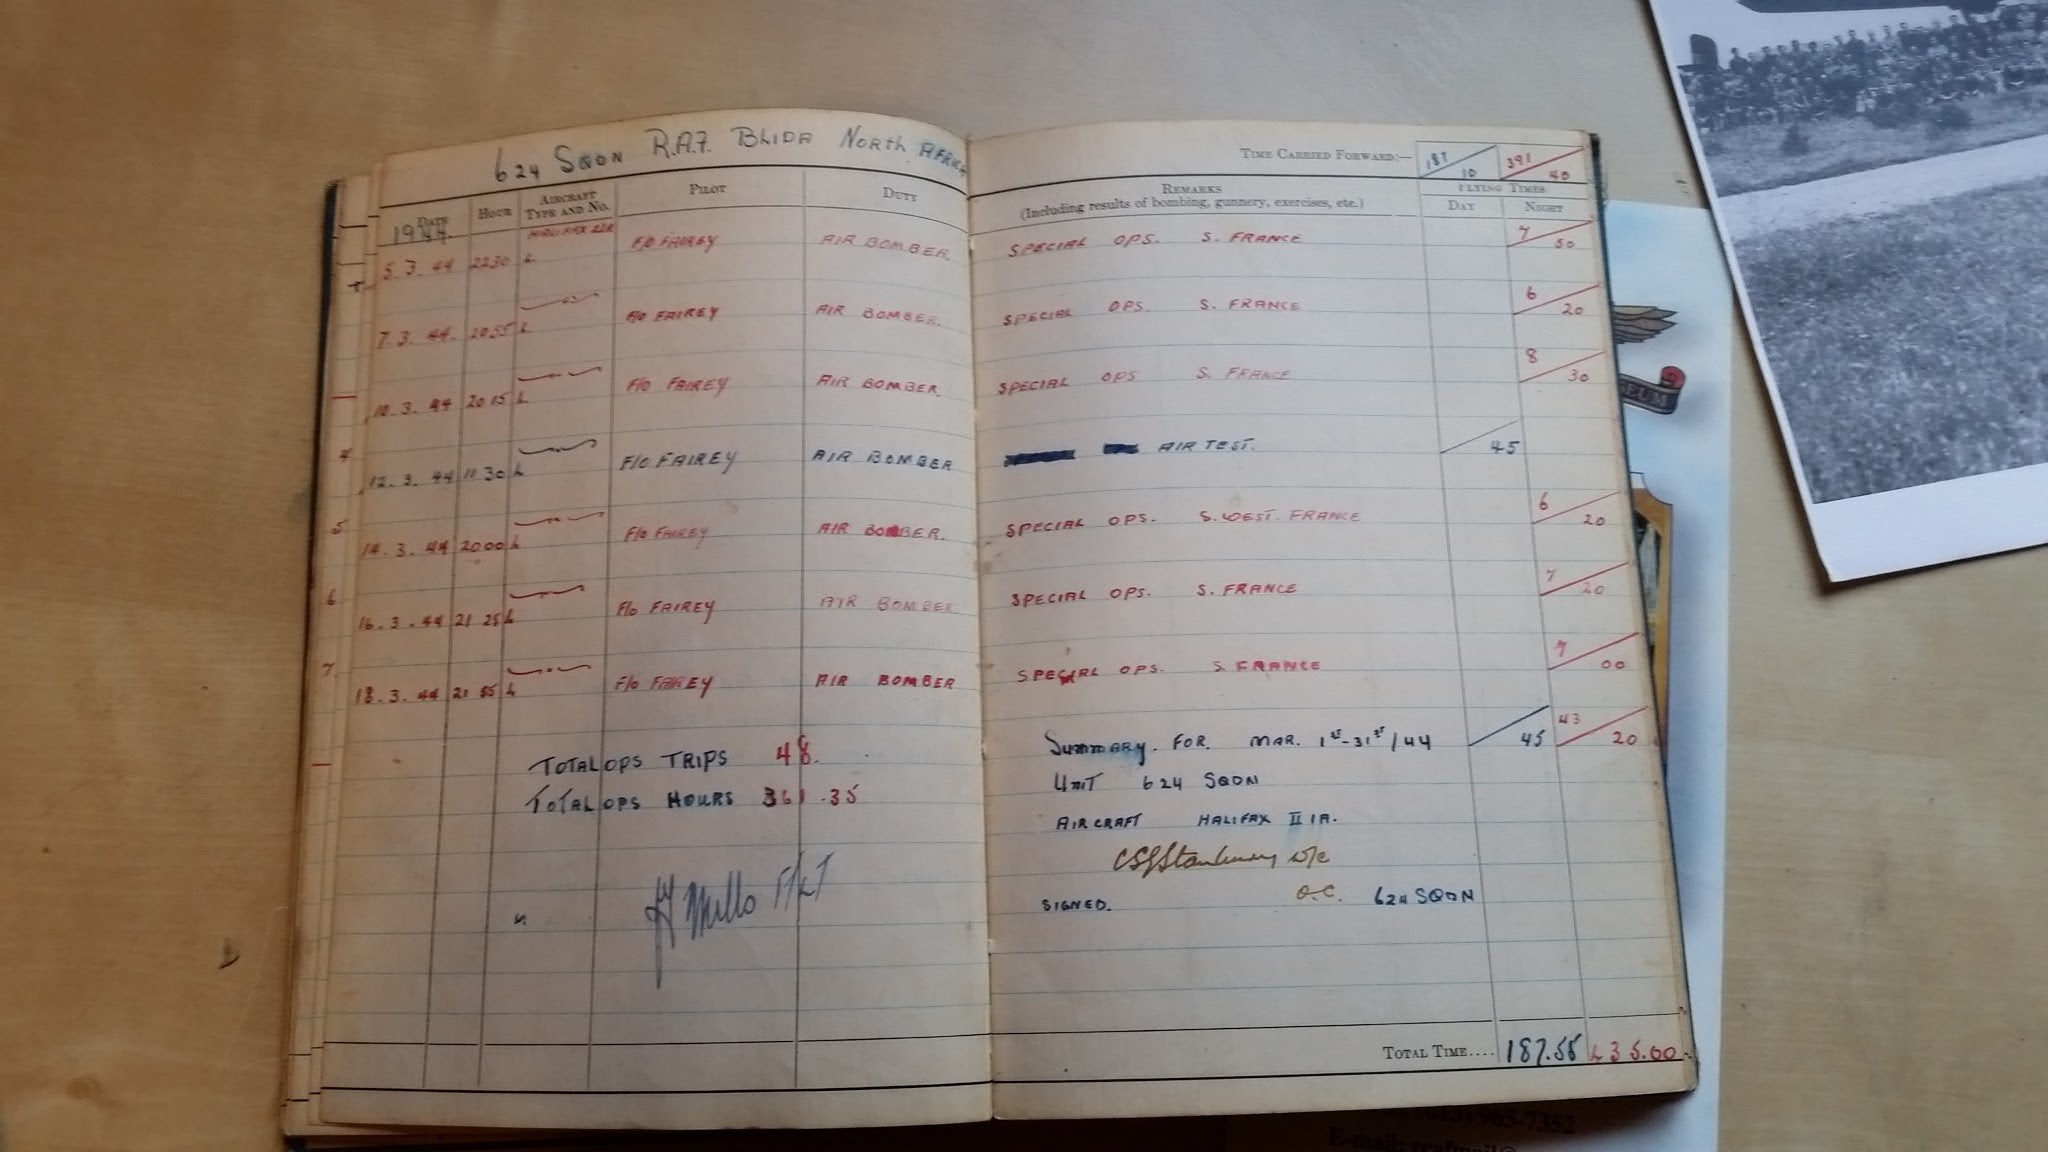 624 SQDN R.A.F. BLIDA NORTH AFRICA
TIME CARRIED FORWARD:— 187/10 391/40
DATE HOUR AIRCRAFT TYPE AND NO. PILOT DUTY REMARKS (Including results of bombing, gunnery, exercises, etc.) FLYING TIMES DAY NIGHT
1944 HALIFAX
5.3.44 2230 L F/O FAIREY AIR BOMBER. SPECIAL OPS. S. FRANCE 7/50
7.3.44. 2055 L F/O FAIREY AIR BOMBER. SPECIAL OPS. S. FRANCE 6/20
10.3.44 2015 L F/O FAIREY AIR BOMBER. SPECIAL OPS S. FRANCE 8/30
4 12.3.44 1130 L F/O FAIREY AIR BOMBER AIR TEST. /45
5 14.3.44 2000 L F/O FAIREY AIR BOMBER. SPECIAL OPS. S.WEST. FRANCE 6/20
6 16.3.44 2125 L F/O FAIREY AIR BOMBER SPECIAL OPS. S. FRANCE 7/20
7. 18.3.44 2155 L F/O FAREY AIR BOMBER SPECIAL OPS. S. FRANCE 7/00
TOTAL OPS TRIPS 48.
TOTAL OPS HOURS 361.35
Mills F/LT
Summary. FOR. MAR. 1st-31st/44 /45 43/20
UNIT 624 SQDN
AIRCRAFT HALIFAX II 1A.
W/C
SIGNED. O.C. 624 SQDN
TOTAL TIME.... 187.55 435.00
EUM
(613) 965-7352
E-mail: